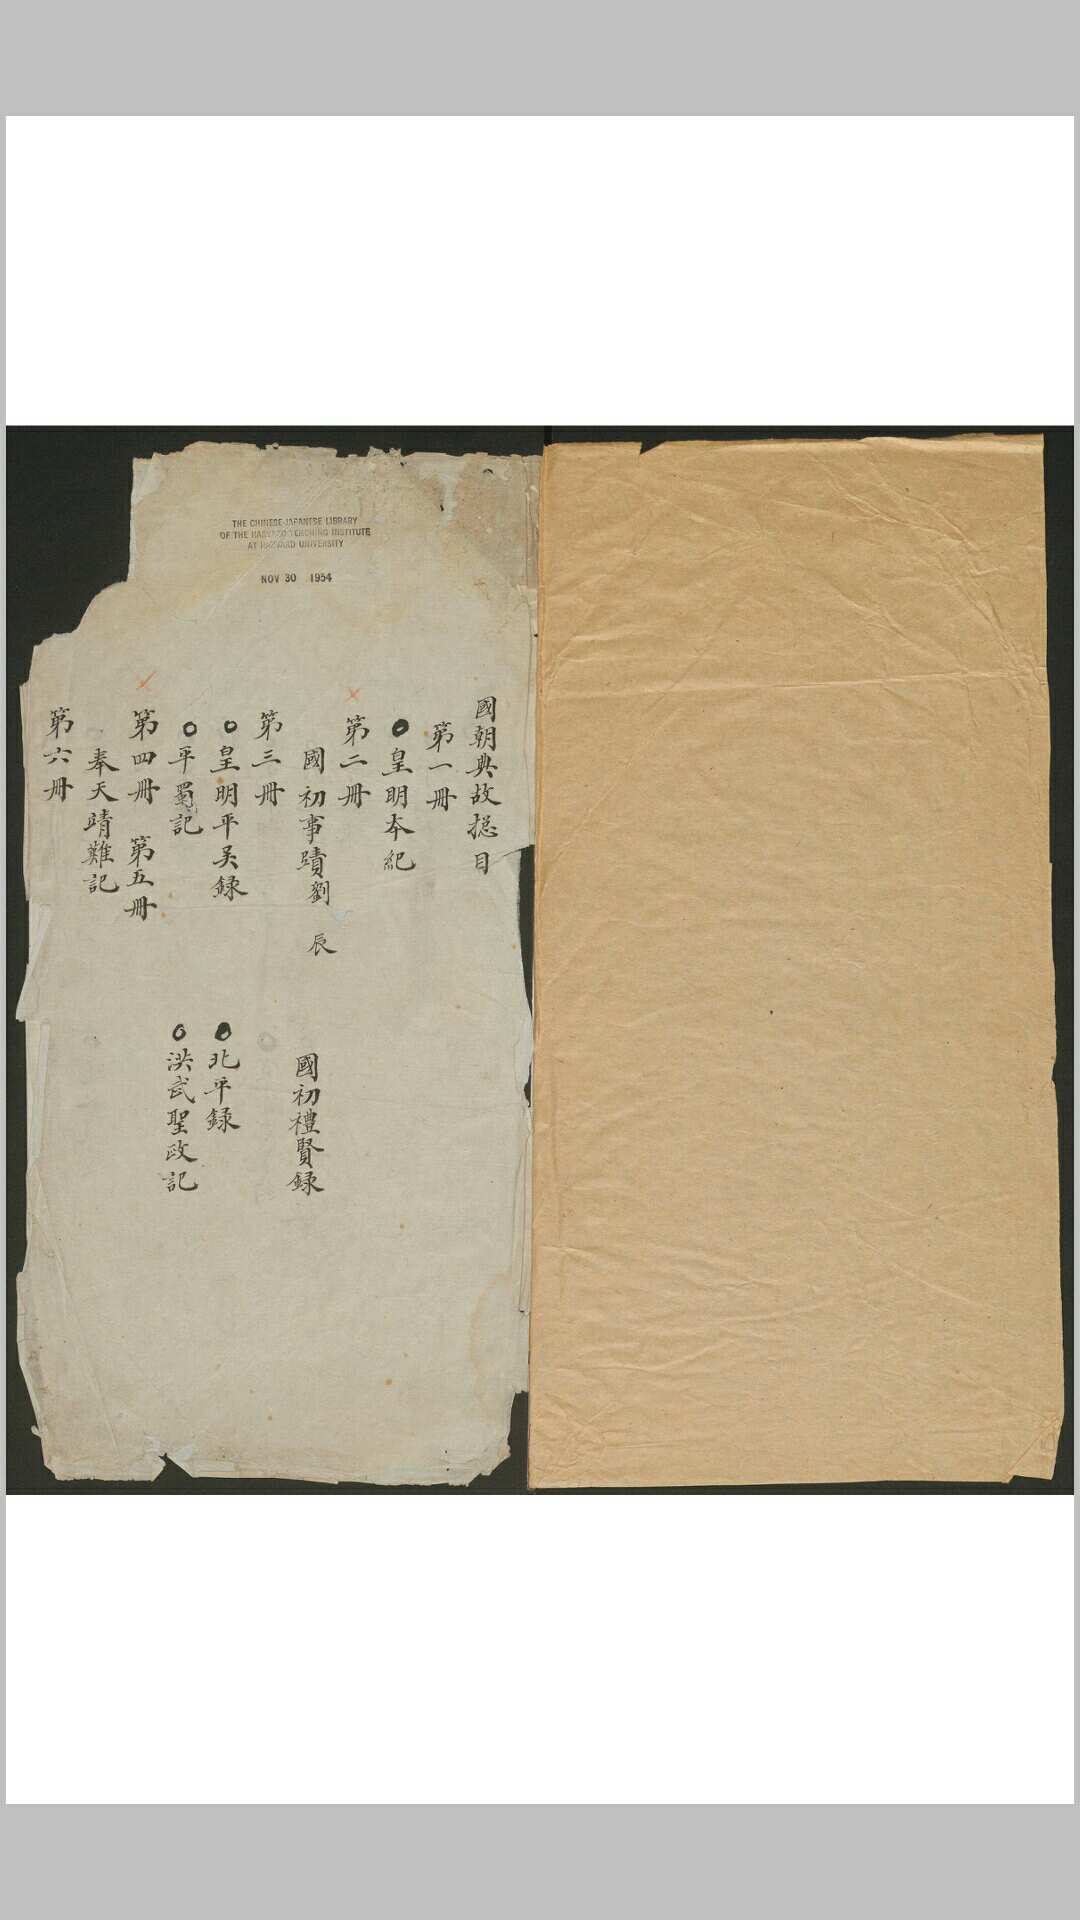 THE CHINESE-JAPANESE LIBRARY
OF THE HARVARD-YENCHING INSTITUTE
AT HARVARD UNIVERSITY
NOV 30 1954
國朝典故摠目
第一冊
皇明夲紀
第二冊
國初事蹟劉辰
國初禮賢録
第三冊
皇明平吴録
北平録
平蜀記
洪武聖政記
第四冊 第五冊
奉天靖難記
第六冊